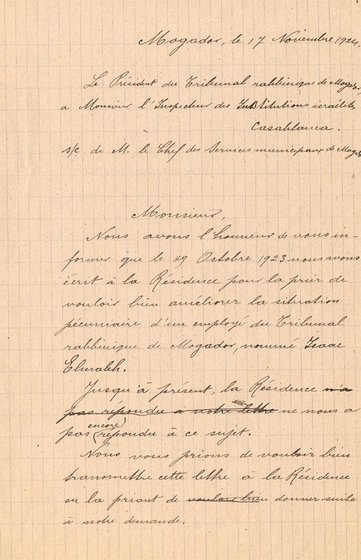 Mogador, le 17 Novembre 1924.
Le Président du Tribunal rabbinique de Mogador,
a Monsieur l'Inspecteur des Institutions israélites
Casablanca.
s/c. de M. le Chef des Services municipaux de Mogador
Monsieur,
Nous avons l'honneur de vous in-
former que le 29 Octobre 1923 nous avons
écrit à la Résidence pour la prier de
vouloir bien améliorer la situation
pécuniaire d'un employé du Tribunal
rabbinique de Mogador, nommé Isaac
Elmaleh.
Jusqu'à présent, la Résidence n'a
pas répondu à notre lettre ne nous a
pas (encore) répondu à ce sujet.
Nous vous prions de vouloir bien
transmettre cette lettre à la Résidence
en la priant de vouloir bien donner suite
à notre demande.